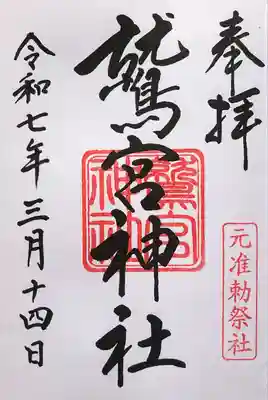 奉拝
元准勅祭社
鷲宮神社
鷲宮神社
令和七年三月十四日